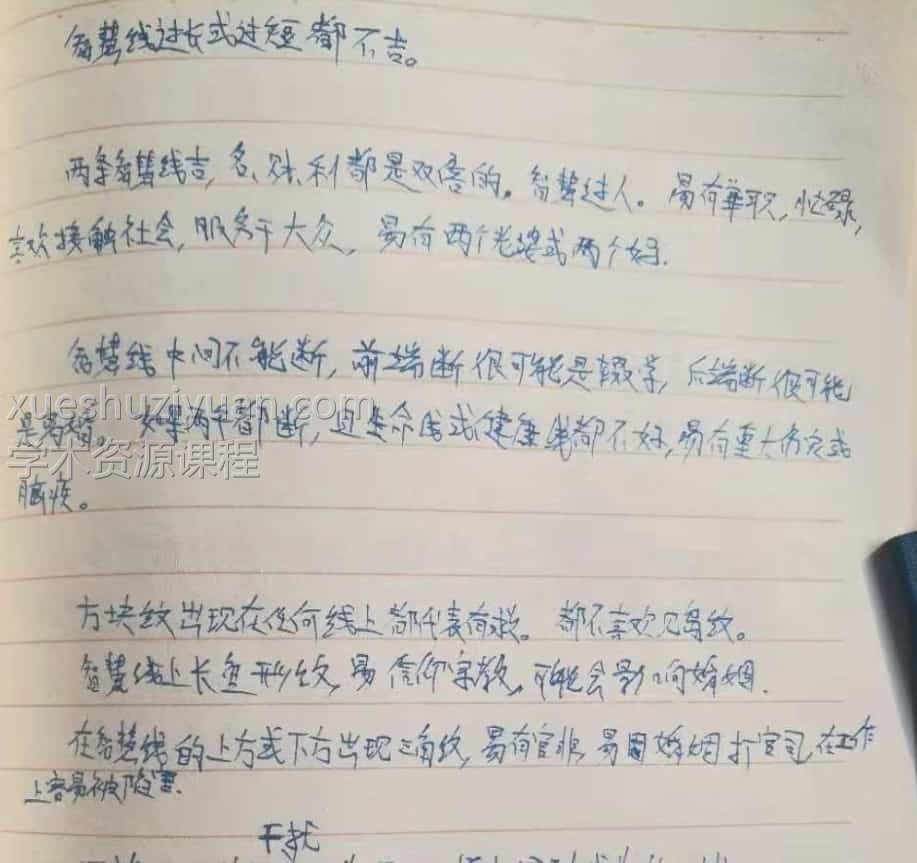 智慧线过长或过短都不吉。
两条智慧线吉,名、财、利都是双倍的。智慧过人。易有兼职,忙碌,
喜欢接触社会,服务于大众,易有两个老婆或两个妈.
智慧线中间不能断,前端断很可能是辍学,后端断很可能
是离婚。如果两手都断,且生命线或健康线都不好,易有重大伤灾或
脑疾。
xueshuziyuan.com
学术资源课程
方块纹出现在任何线上都代表有救。都不喜欢见岛纹。
智慧线上长鱼形纹,易信仰宗教,可能会影响婚姻.
在智慧线的上方或下方出现三角纹,易有官非,易因婚姻打官司,在工作
上容易被陷害.
干扰